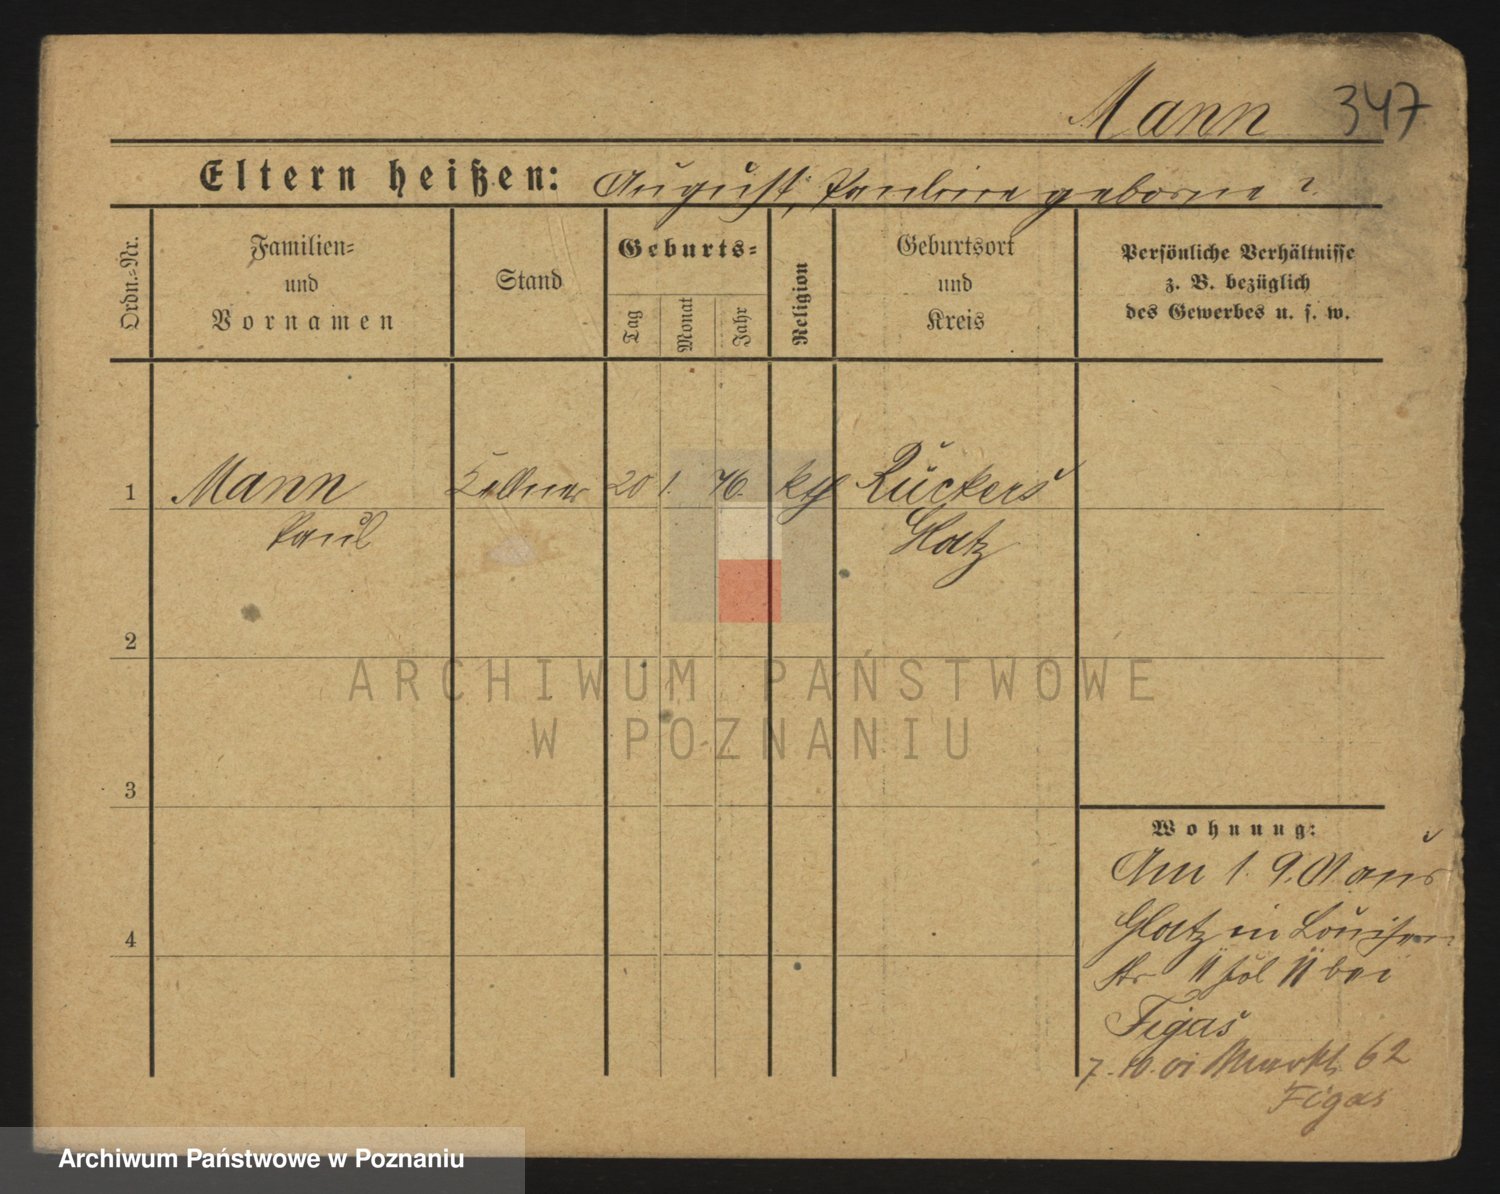 Mann 347
Eltern heißen: August, Pauline geborne ?
Ordn.=Nr.
Familien=
und
Vornamen
Stand
Geburts=
Tag
Monat
Jahr
Religion
Geburtsort
und
Kreis
Persönliche Verhältnisse
z. B. bezüglich
des Gewerbes u. s. w.
1 Mann Kellner 20 1. 76. kth Rückers
Paul Glatz
2
3
4
ARCHIWUM PAŃSTWOWE
W POZNANIU
Wohnung:
Am 1. 9. 01 aus
Glatz in Louisen
str 11 bei
Figas
7. 10. 01 Markt 62
Figas
Archiwum Państwowe w Poznaniu